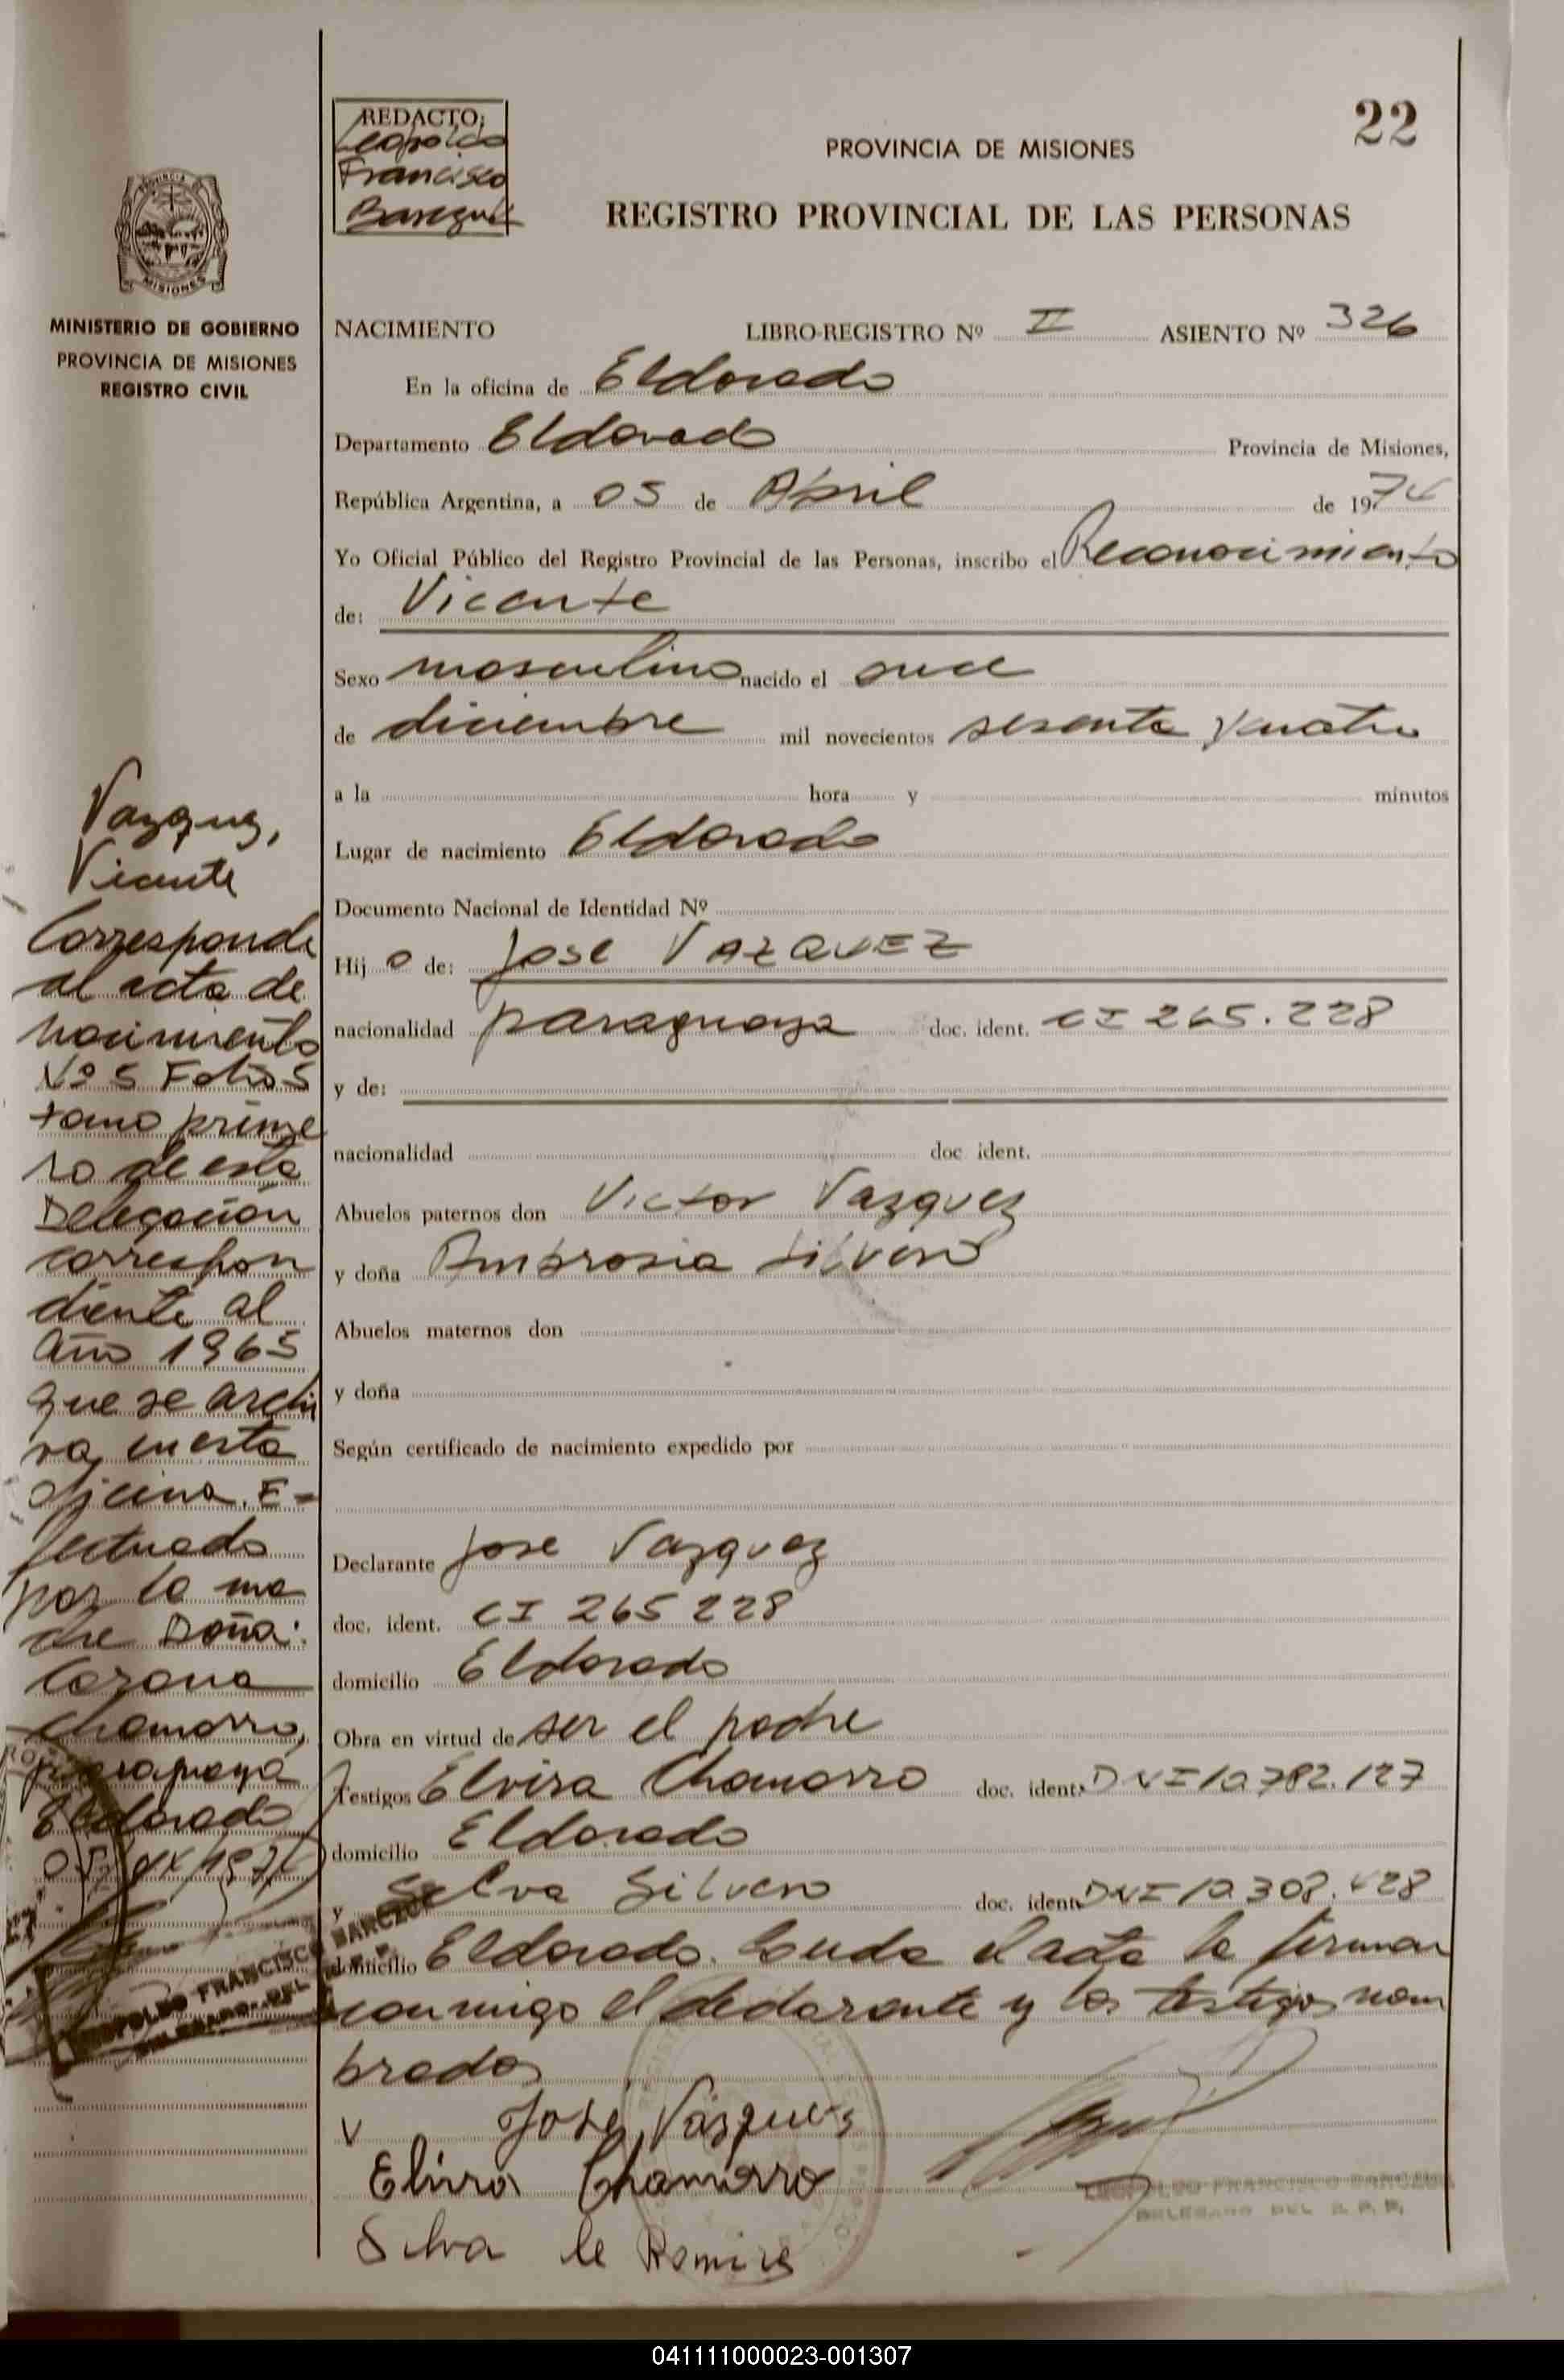 22
REDACTO:
Leopoldo
Francisco
PROVINCIA DE MISIONES
REGISTRO PROVINCIAL DE LAS PERSONAS
PROVINCIA DE
MISIONES
MINISTERIO DE GOBIERNO
PROVINCIA DE MISIONES
REGISTRO CIVIL
NACIMIENTO LIBRO-REGISTRO Nº II ASIENTO Nº 326
En la oficina de Eldorado
Departamento Eldorado Provincia de Misiones,
República Argentina, a 05 de Abril de 1974
Yo Oficial Público del Registro Provincial de las Personas, inscribo el Reconocimiento
de: Vicente
Sexo masculino nacido el once
de diciembre mil novecientos sesenta y cuatro
a la hora y minutos
Lugar de nacimiento Eldorado
Documento Nacional de Identidad Nº
Hijo de: Jose VAZQUEZ
nacionalidad paraguaya doc. ident. CI 265.228
y de:
nacionalidad doc. ident.
Abuelos paternos don Victor Vazquez
y doña Ambrosia Silvero
Abuelos maternos don
y doña
Según certificado de nacimiento expedido por
Declarante Jose Vazquez
doc. ident. CI 265 228
domicilio Eldorado
Obra en virtud de ser el padre
Testigos Elvira Chamorro doc. ident. DNI 10.782.127
domicilio Eldorado
y Selva Silvero doc. ident. DNI 10.308.428
domicilio Eldorado. Leida el acta la firman
conmigo el declarante y los testigos nom
brados
José Vázquez
Elvira Chamorro
Silva de Ramirez
LEOPOLDO FRANCISCO BARCZUK
DELEGADO DEL R. P. P.
Vazquez,
Vicente
Corresponde
al acta de
nacimiento
Nº 5 Folio 5
tomo prime
ro de esta
Delegación
correspon
diente al
año 1965
que se archi
va en esta
oficina. E-
fectuado
por la ma
dre Doña:
Corona
Chamorro,
paraguaya
Eldorado
LEOPOLDO FRANCISCO BARCZUK
DELEGADO DEL
041111000023-001307